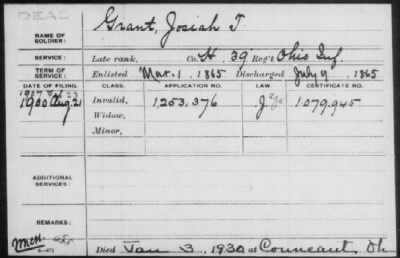 DEAD
NAME OF SOLDIER: Grant, Josiah T.
SERVICE: Late rank, Co. H. 39 Reg't Ohio Inf.
TERM OF SERVICE: Enlisted Mar. 1 1865 Discharged July 9 1865
DATE OF FILING. CLASS. APPLICATION NO. LAW. CERTIFICATE NO.
1900 Aug. 21 Invalid, 1,253,376 1,079,945
Widow,
Minor,
ADDITIONAL SERVICES:
REMARKS:
Died Jan 3, 1930 at Conneaut, Oh